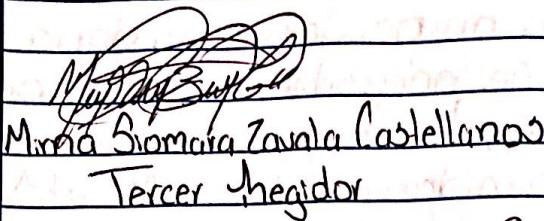 Mirna Siomara Zavala Castellanos
Tercer Regidor